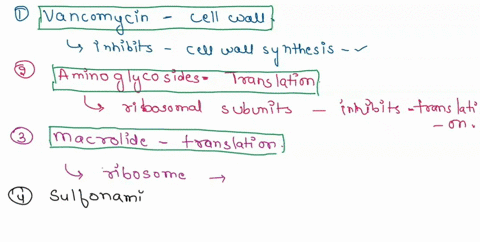 ① Vancomycin - cell wall
↳ inhibits - cell wall synthesis -✓
② Aminoglycosides- Translation
↳ ribosomal subunits - inhibits -translati
-on.
③ Macrolide - translation.
↳ ribosome →
④ Sulfonami